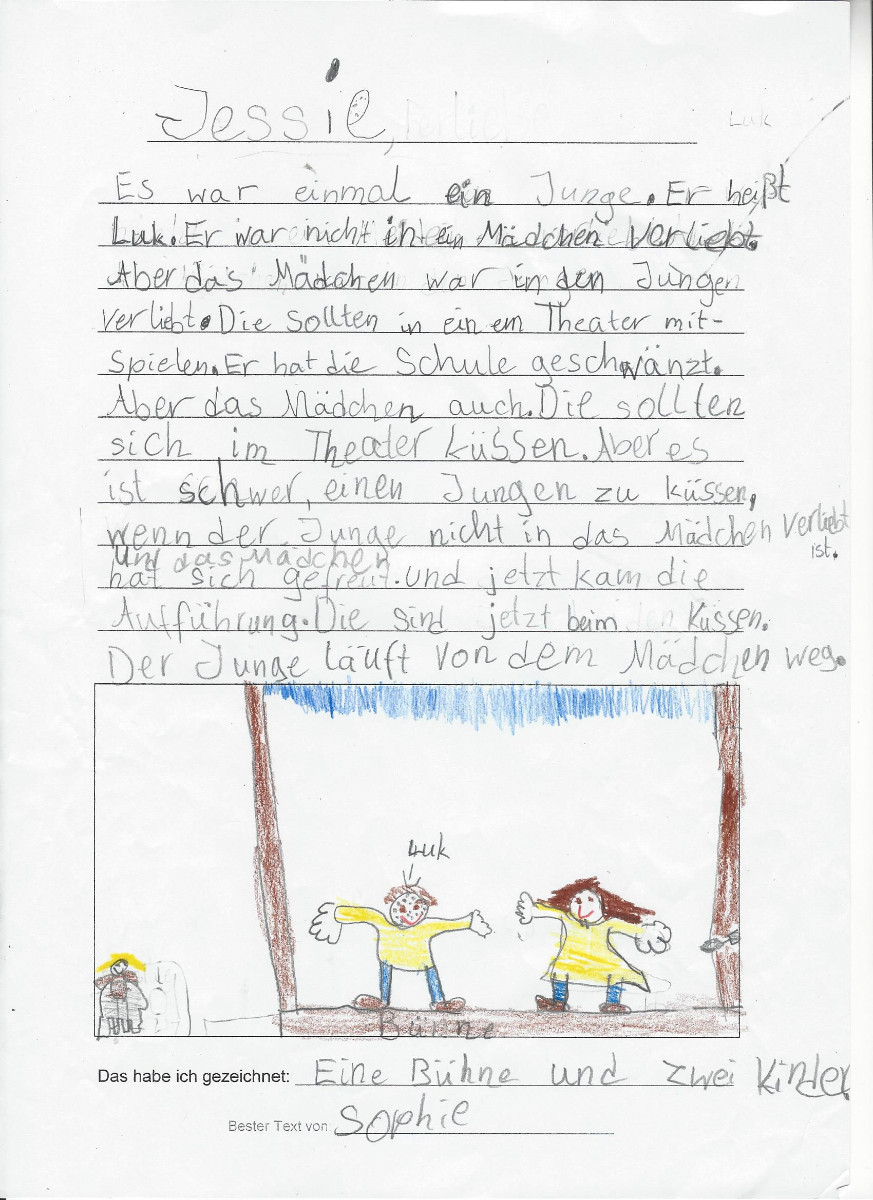 Jessie,
Luk
Es war einmal ein Junge. Er heißt
Luk. Er war nicht in ein Mädchen verliebt.
Aber das Mädchen war in den Jungen
verliebt. Die sollten in ein em Theater mit-
spielen. Er hat die Schule geschwänzt.
Aber das Mädchen auch. Die sollten
sich im Theater küssen. Aber es
ist schwer, einen Jungen zu küssen,
wenn der Junge nicht in das Mädchen verliebt
ist.
Und das Mädchen
hat sich gefreut. Und jetzt kam die
Aufführung. Die sind jetzt beim Küssen.
Der Junge läuft von dem Mädchen weg.
Luk
Bühne
Das habe ich gezeichnet: Eine Bühne und zwei Kinder.
Bester Text von Sophie